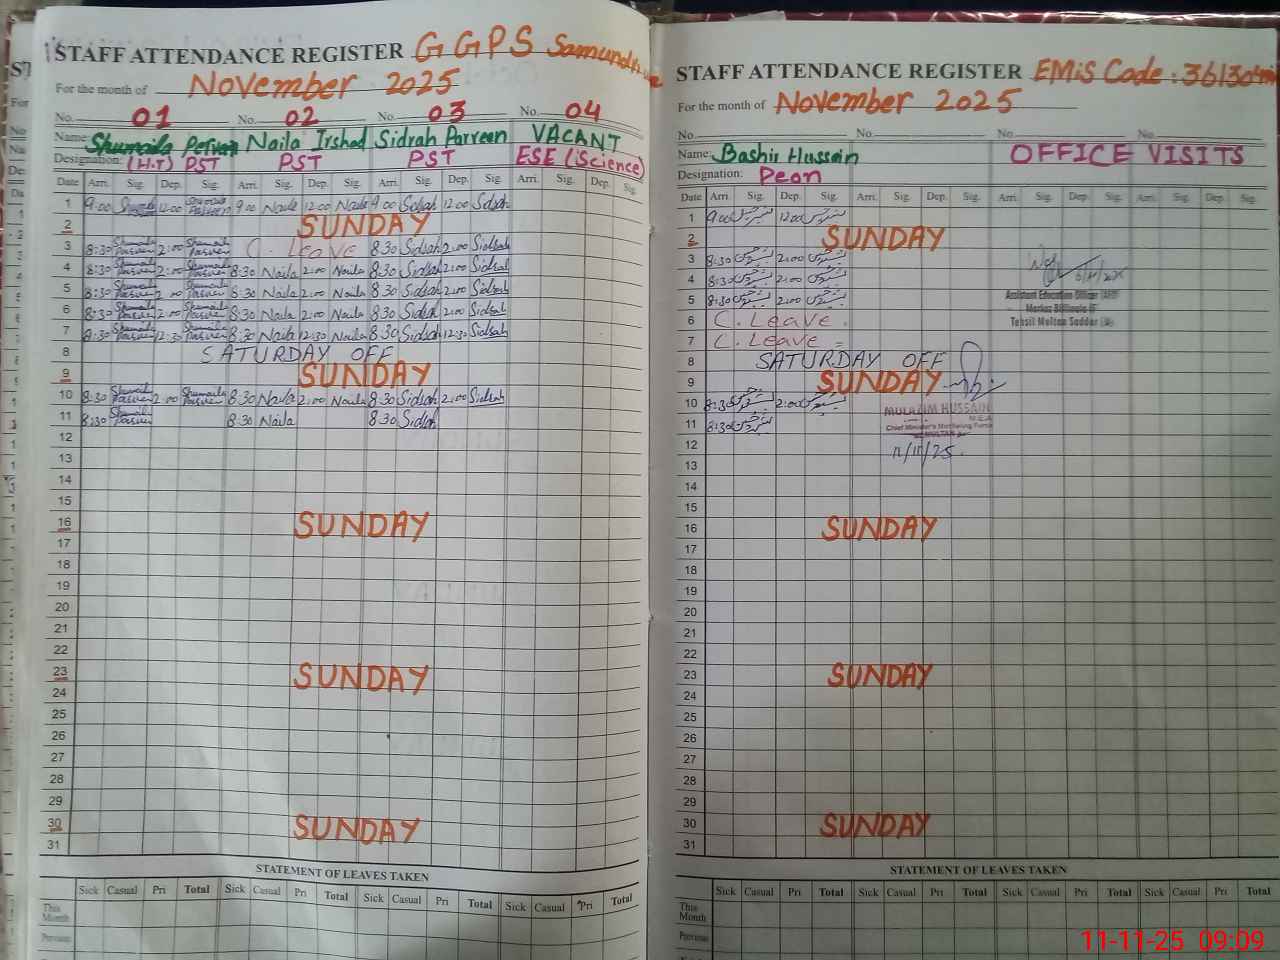 STAFF ATTENDANCE REGISTER GGPS
For the month of November 2025
No. 01 No. 02 No. 03 No. 04
Name: Shumaila Parveen Naila Irshad Sidrah Parveen VACANT
Designation: (H.T) PST PST PST ESE (Science)
Date Arri. Sig. Dep. Sig. Arri. Sig. Dep. Sig. Arri. Sig. Dep. Sig. Arri. Sig. Dep. Sig.
1 9:00 12:00 9:00 Naila 12:00 Naila 9:00 Sidrah 12:00 Sidrah
2 SUNDAY
3 8:30 Shumaila Parveen 2:00 Shumaila Parveen C. Leave 8:30 Sidrah 2:00 Sidrah
4 8:30 Shumaila Parveen 2:00 Shumaila Parveen 8:30 Naila 2:00 Naila 8:30 Sidrah 2:00 Sidrah
5 8:30 Shumaila Parveen 2:00 Shumaila Parveen 8:30 Naila 2:00 Naila 8:30 Sidrah 2:00 Sidrah
6 8:30 Shumaila Parveen 2:00 Shumaila Parveen 8:30 Naila 2:00 Naila 8:30 Sidrah 2:00 Sidrah
7 8:30 Shumaila Parveen 12:30 Shumaila Parveen 8:30 Naila 12:30 Naila 8:30 Sidrah 12:30 Sidrah
8 SATURDAY OFF
9 SUNDAY
10 8:30 Shumaila Parveen 2:00 Shumaila Parveen 8:30 Naila 2:00 Naila 8:30 Sidrah 2:00 Sidrah
11 8:30 Shumaila Parveen 8:30 Naila 8:30 Sidrah
12
13
14
15
16 SUNDAY
17
18
19
20
21
22
23 SUNDAY
24
25
26
27
28
29
30 SUNDAY
31
STATEMENT OF LEAVES TAKEN
Sick Casual Pri Total Sick Casual Pri Total Sick Casual Pri Total Sick Casual Pri Total
This Month
Previous
STAFF ATTENDANCE REGISTER EMiS Code:
For the month of November 2025
No. No. No. No.
Name: Bashir Hussain OFFICE VISITS
Designation: Peon
Date Arri. Sig. Dep. Sig. Arri. Sig. Dep. Sig. Arri. Sig. Dep. Sig. Arri. Sig. Dep. Sig.
1 9:00 12:00
2 SUNDAY
3 8:30 2:00
4 8:30 2:00
5 8:30 2:00
Assistant Education Officer
Markaz
Tehsil Multan Saddar
6 C. Leave
7 C. Leave
8 SATURDAY OFF
9 SUNDAY
10 8:30 2:00
MULAZIM HUSSAIN
M.E.A
11 8:30
Chief Minister's Monitoring Force
MULTAN
12
11/11/25
13
14
15
16 SUNDAY
17
18
19
20
21
22
23 SUNDAY
24
25
26
27
28
29
30 SUNDAY
31
STATEMENT OF LEAVES TAKEN
Sick Casual Pri Total Sick Casual Pri Total Sick Casual Pri Total Sick Casual Pri Total
This Month
Previous
11-11-25 09:09